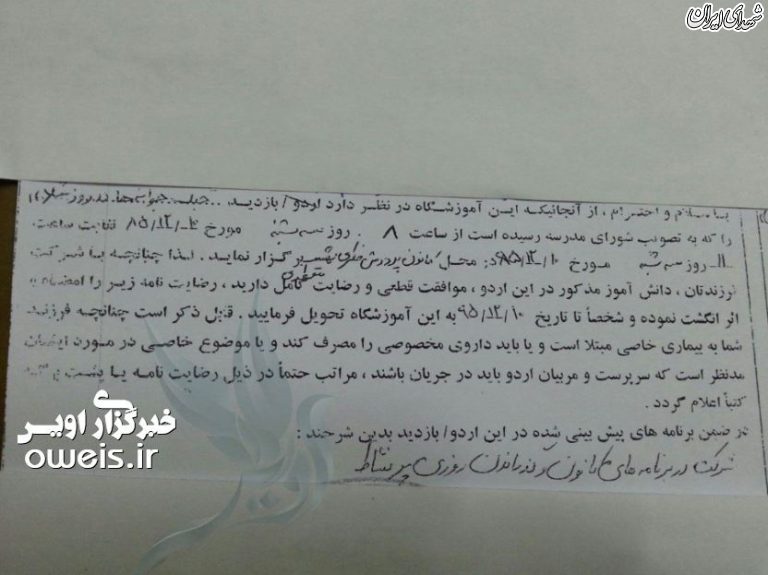 شهدای ایران
با سلام و احترام ، از آنجائیکه این آموزشگاه در نظر دارد اردو / بازدید
را که به تصویب شورای مدرسه رسیده است از ساعت ۸ . روز سه شنبه مورخ ثابت ساعت
روز سه شنبه مورخ ۹۵/۱۲/۱۰ در محل کانون پرورش فکری برگزار نماید . لذا چنانچه با شرکت
فرزندتان ، دانش آموز مذکور در این اردو ، موافقت قطعی و رضایت کامل دارید ، رضایت نامه زیر را امضاء یا
اثر انگشت نموده و شخصاً تا تاریخ ۹۵/۱۲/۱۰ به این آموزشگاه تحویل فرمایید . قابل ذکر است چنانچه فرزند
شما به بیماری خاصی مبتلا است و یا باید داروی مخصوصی را مصرف کند و یا موضوع خاصی در مورد ایشان
مدنظر است که سرپرست و مربیان اردو باید در جریان باشند ، مراتب حتماً در ذیل رضایت نامه یا پشت برگه
کتباً اعلام گردد .
در ضمن برنامه های پیش بینی شده در این اردو/ بازدید بدین شرحند :
شرکت در برنامه های کانون و گذراندن روزی پر نشاط
خبرگزاری اویس
oweis.ir